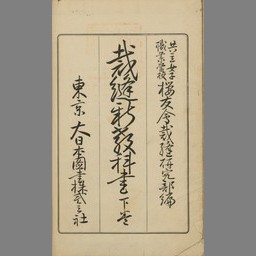 共立女子
職業学校
桜友会裁縫研究部編
裁縫新教科書 下巻
東京 大日本図書株式会社